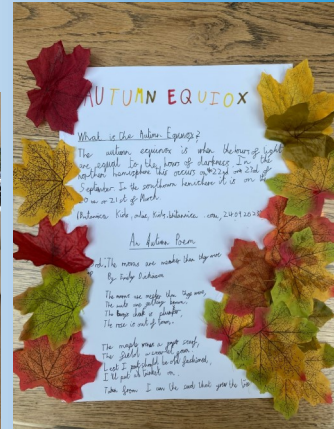 AUTUMN EQUIOX
What is the Autumn Equinox?
The autumn equinox is when the hours of light
are equal to the hours of darkness. In the
northern hemisphere this occurs on 22nd or 23rd of
September. In the southern hemisphere it is on
20 or 21st of March.
(Britannica Kids, kids.britannica.com, 24.09.2025)
An Autumn Poem
The morns are meeker than they were
By Emily Dickinson
The morns are meeker than they were,
The nuts are getting brown,
The berry's cheek is plumper,
The rose is out of town.
The maple wears a gayer scarf,
The field a scarlet gown.
Lest I should be old fashioned,
I'll put a trinket on.
Taken from I am the seed that grew the tree